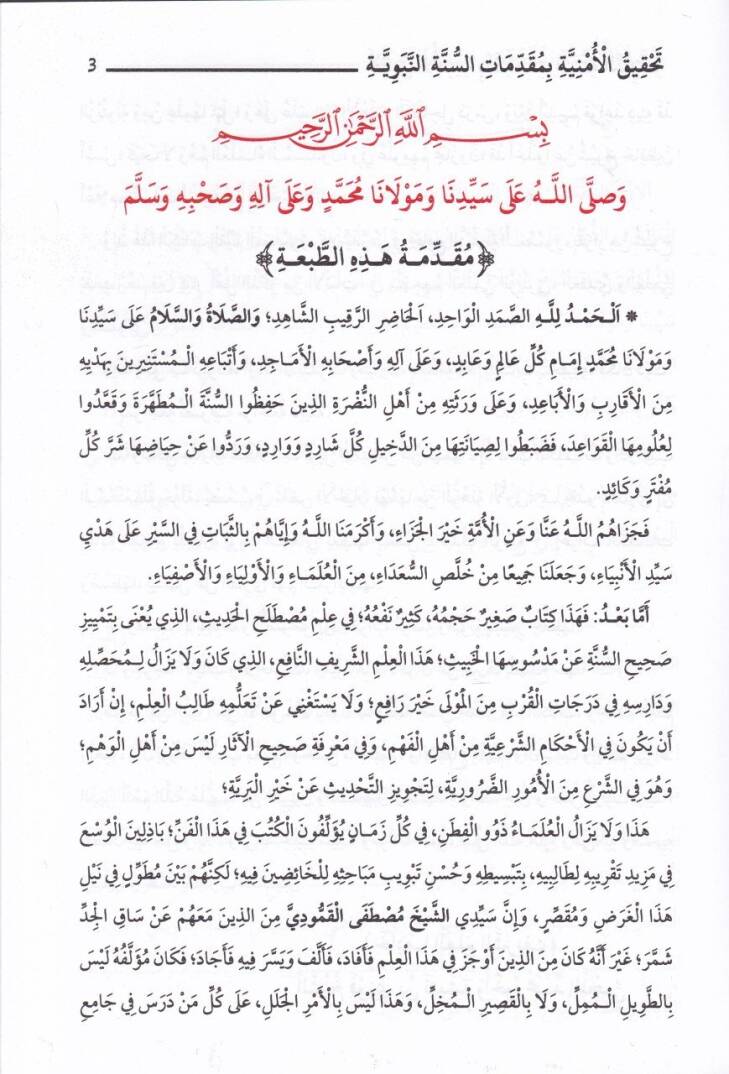 تَحْقِيقُ الْأُمْنِيَّةِ بِمُقَدِّمَاتِ السُّنَّةِ النَّبَوِيَّةِ 3
بِسْمِ اللَّهِ الرَّحْمَٰنِ الرَّحِيمِ
وَصَلَّى اللَّهُ عَلَى سَيِّدِنَا وَمَوْلَانَا مُحَمَّدٍ وَعَلَى آلِهِ وَصَحْبِهِ وَسَلَّمَ
﴿مُقَدِّمَةُ هَذِهِ الطَّبْعَةِ﴾
* اَلْحَمْدُ لِلَّهِ الصَّمَدِ الْوَاحِدِ، الْحَاضِرِ الرَّقِيبِ الشَّاهِدِ؛ وَالصَّلَاةُ وَالسَّلَامُ عَلَى سَيِّدِنَا
وَمَوْلَانَا مُحَمَّدٍ إِمَامِ كُلِّ عَالِمٍ وَعَابِدٍ، وَعَلَى آلِهِ وَأَصْحَابِهِ الْأَمَاجِدِ، وَأَتْبَاعِهِ الْمُسْتَنِيرِينَ بِهَدْيِهِ
مِنَ الْأَقَارِبِ وَالْأَبَاعِدِ، وَعَلَى وَرَثَتِهِ مِنْ أَهْلِ النُّضْرَةِ الذِينَ حَفِظُوا السُّنَّةَ الْمُطَهَّرَةَ وَقَعَّدُوا
لِعُلُومِهَا الْقَوَاعِدَ، فَضَبَطُوا لِصِيَانَتِهَا مِنَ الدَّخِيلِ كُلَّ شَارِدٍ وَوَارِدٍ، وَرَدُّوا عَنْ حِيَاضِهَا شَرَّ كُلِّ
مُفْتَرٍ وَكَائِدٍ.
فَجَزَاهُمُ اللَّهُ عَنَّا وَعَنِ الْأُمَّةِ خَيْرَ الْجَزَاءِ، وَأَكْرَمَنَا اللَّهُ وَإِيَّاهُمْ بِالثَّبَاتِ فِي السَّيْرِ عَلَى هَدْيِ
سَيِّدِ الْأَنْبِيَاءِ، وَجَعَلَنَا جَمِيعًا مِنْ خُلَّصِ السُّعَدَاءِ، مِنَ الْعُلَمَاءِ وَالْأَوْلِيَاءِ وَالْأَصْفِيَاءِ.
أَمَّا بَعْدُ: فَهَذَا كِتَابٌ صَغِيرٌ حَجْمُهُ، كَثِيرٌ نَفْعُهُ؛ فِي عِلْمِ مُصْطَلَحِ الْحَدِيثِ، الذِي يُعْنَى بِتَمْيِيزِ
صَحِيحِ السُّنَّةِ عَنْ مَدْسُوسِهَا الْخَبِيثِ؛ هَذَا الْعِلْمِ الشَّرِيفِ النَّافِعِ، الذِي كَانَ وَلَا يَزَالُ لِمُحَصِّلِهِ
وَدَارِسِهِ فِي دَرَجَاتِ الْقُرْبِ مِنَ الْمَوْلَى خَيْرَ رَافِعٍ؛ وَلَا يَسْتَغْنِي عَنْ تَعَلُّمِهِ طَالِبُ الْعِلْمِ، إِنْ أَرَادَ
أَنْ يَكُونَ فِي الْأَحْكَامِ الشَّرْعِيَّةِ مِنْ أَهْلِ الْفَهْمِ، وَفِي مَعْرِفَةِ صَحِيحِ الْآثَارِ لَيْسَ مِنْ أَهْلِ الْوَهْمِ؛
وَهُوَ فِي الشَّرْعِ مِنَ الْأُمُورِ الضَّرُورِيَّةِ، لِتَجْوِيزِ التَّحْدِيثِ عَنْ خَيْرِ الْبَرِيَّةِ؛
هَذَا وَلَا يَزَالُ الْعُلَمَاءُ ذَوُو الْفِطَنِ، فِي كُلِّ زَمَانٍ يُؤَلِّفُونَ الْكُتُبَ فِي هَذَا الْفَنِّ؛ بَاذِلِينَ الْوُسْعَ
فِي مَزِيدِ تَقْرِيبِهِ لِطَالِبِيهِ، بِتَبْسِيطِهِ وَحُسْنِ تَبْوِيبِ مَبَاحِثِهِ لِلْخَائِضِينَ فِيهِ؛ لَكِنَّهُمْ بَيْنَ مُطَوِّلٍ فِي نَيْلِ
هَذَا الْغَرَضِ وَمُقَصِّرٍ، وَإِنَّ سَيِّدِي الشَّيْخَ مُصْطَفَى الْقَمُودِيَّ مِنَ الذِينَ مَعَهُمْ عَنْ سَاقِ الْجِدِّ
شَمَّرَ؛ غَيْرَ أَنَّهُ كَانَ مِنَ الذِينَ أَوْجَزَ فِي هَذَا الْعِلْمِ فَأَفَادَ، فَأَلَّفَ وَيَسَّرَ فِيهِ فَأَجَادَ؛ فَكَانَ مُؤَلَّفُهُ لَيْسَ
بِالطَّوِيلِ الْمُمِلِّ، وَلَا بِالْقَصِيرِ الْمُخِلِّ، وَهَذَا لَيْسَ بِالْأَمْرِ الْجَلَلِ، عَلَى كُلِّ مَنْ دَرَسَ فِي جَامِعِ